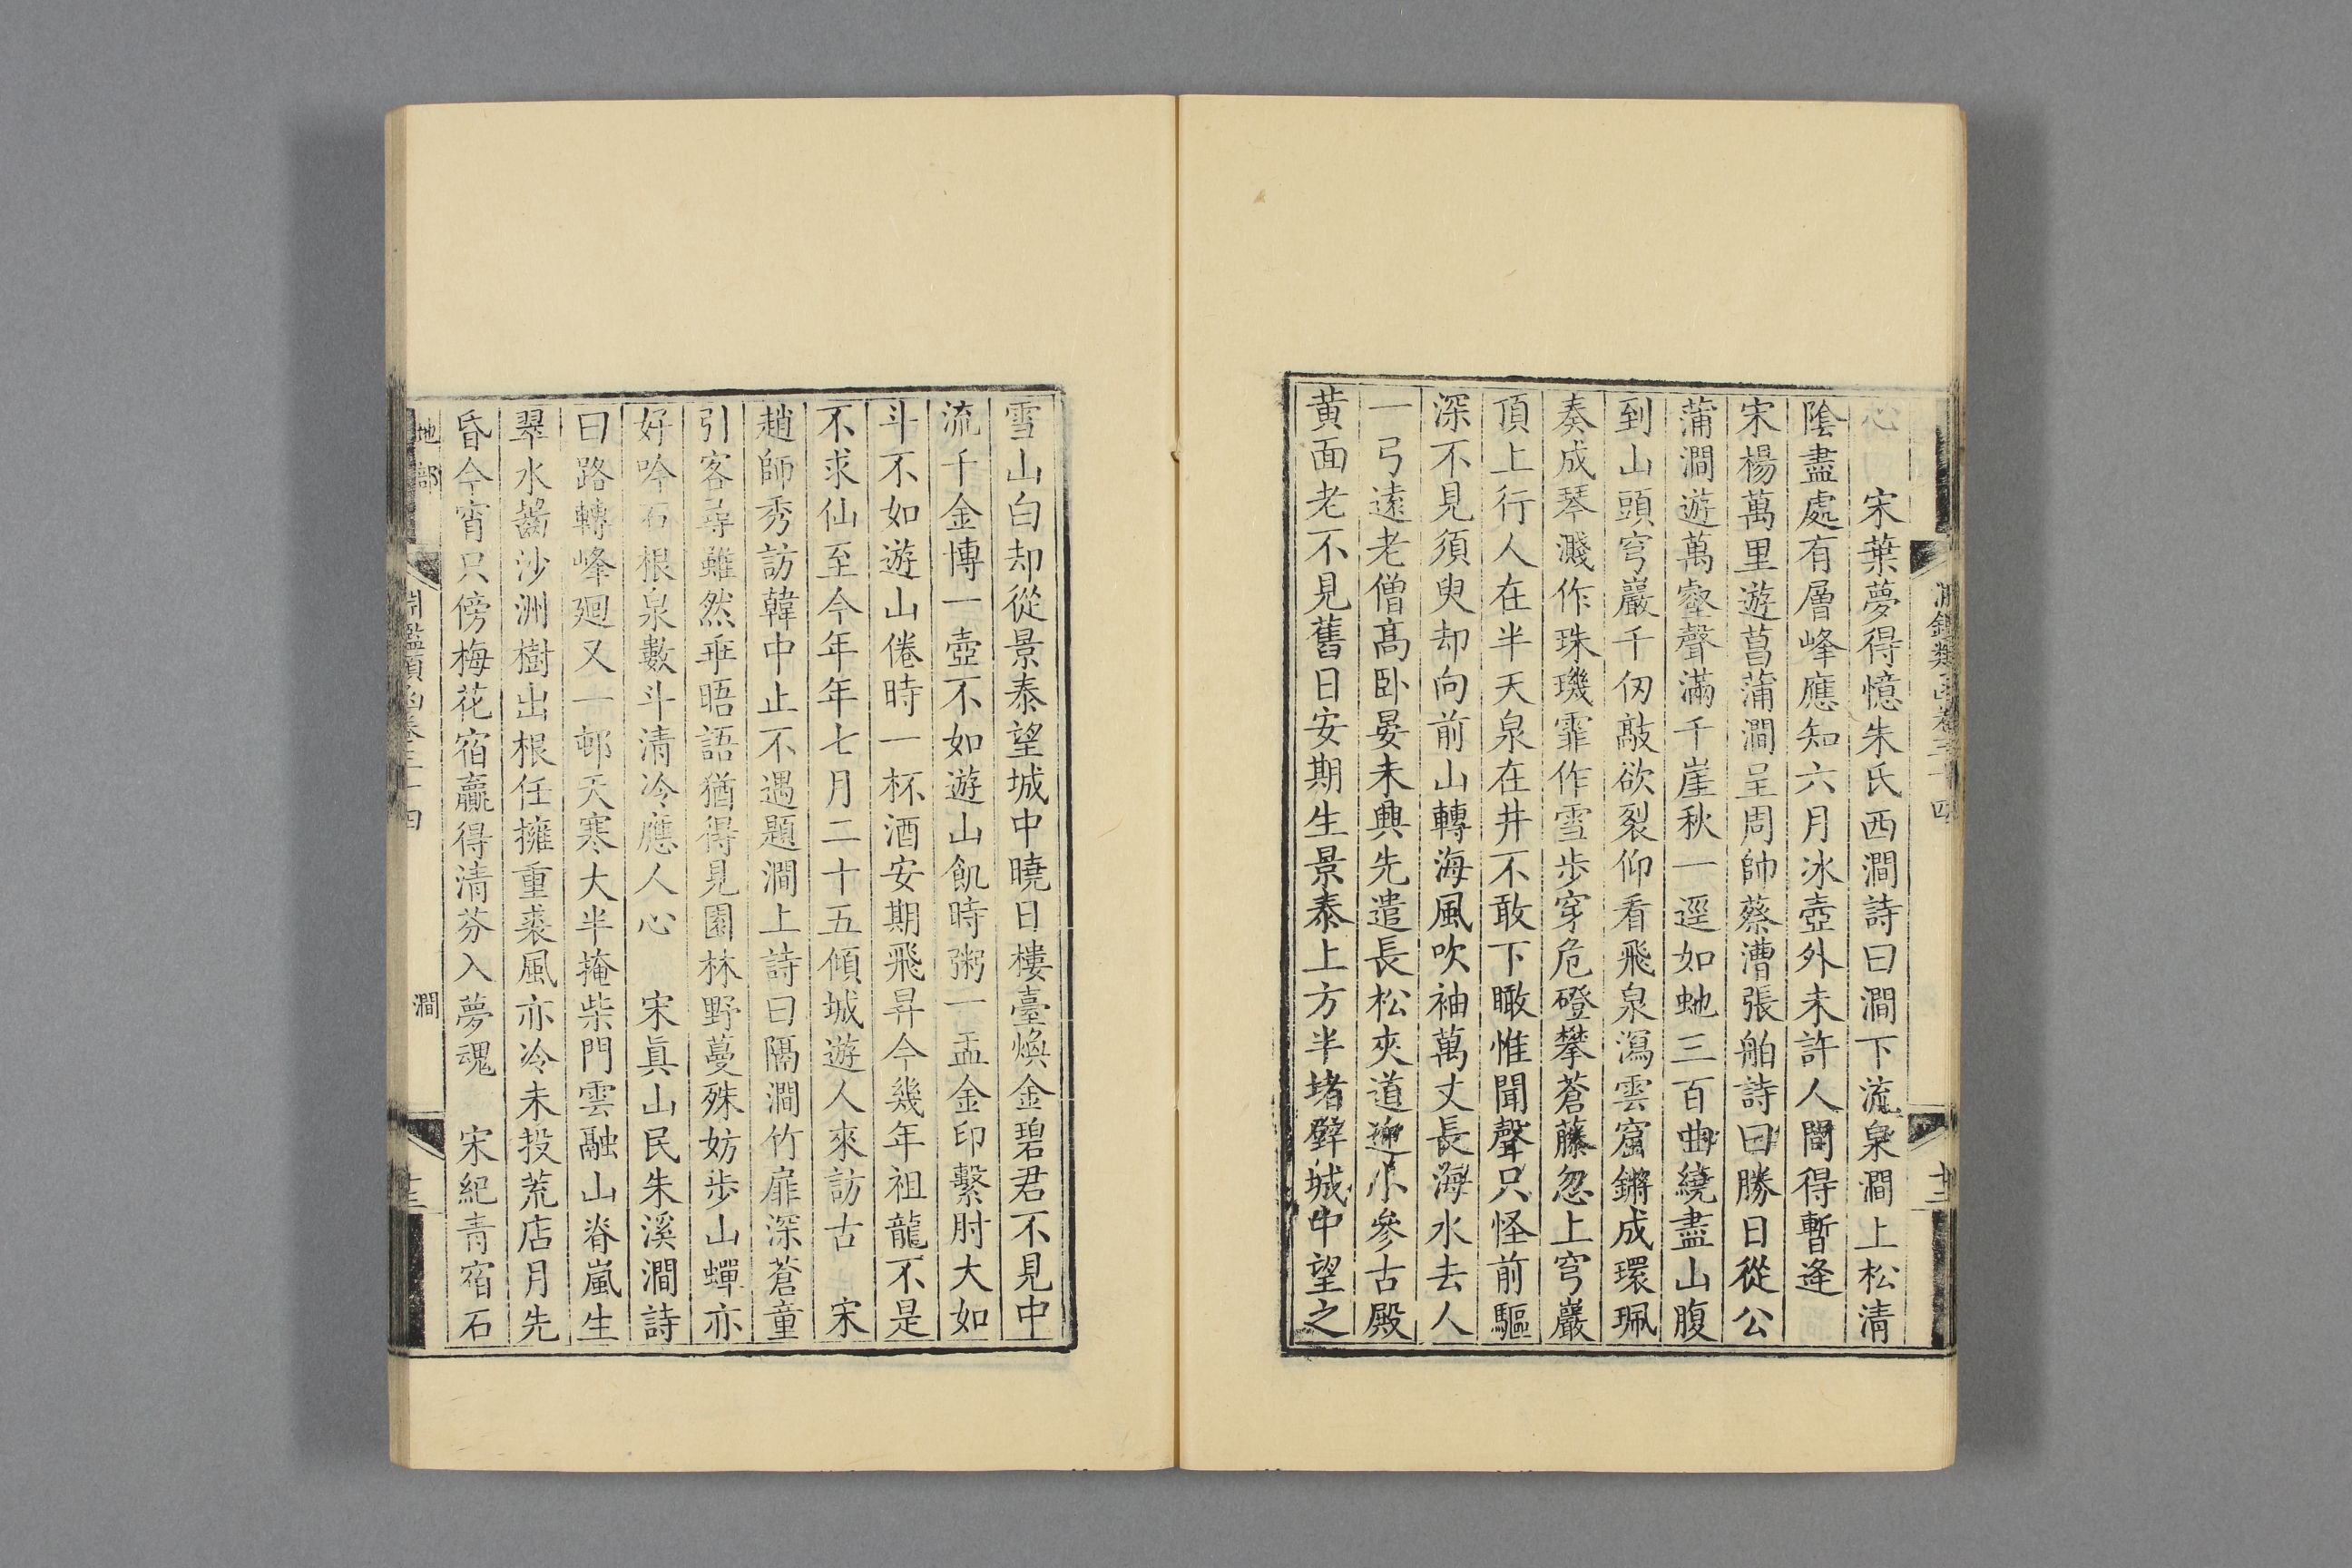 心　宋葉夢得憶朱氏西澗詩曰澗下流泉澗上松淸
陰盡處有層峰應知六月冰壺外未許人間得暫逄
宋楊萬里遊菖蒲澗呈周帥蔡漕張舶詩曰勝日從公
蒲澗遊萬壑聲滿千崖秋一逕如虵三百曲繞盡山腹
到山頭穹巖千仞敲欲裂仰看飛泉瀉雲窟鏘成環珮
奏成琴濺作珠璣霏作雪步穿危磴攀蒼藤忽上穹巖
頂上行人在半天泉在井不敢下瞰惟聞聲只怪前驅
深不見須臾却向前山轉海風吹袖萬丈長海水去人
一弓遠老僧高卧晏未興先遣長松夾道迎小參古殿
黄面老不見舊日安期生景泰上方半堵壁城中望之
雪山白却從景泰望城中曉日樓臺煥金碧君不見中
流千金博一壺不如遊山飢時粥一盂金印繫肘大如
斗不如遊山倦時一杯酒安期飛昇今幾年祖龍不是
不求仙至今年年七月二十五傾城遊人來訪古　宋
趙師秀訪韓中止不遇題澗上詩曰隔澗竹扉深蒼童
引客尋雖然乖晤語猶得見園林野蔓殊妨步山蟬亦
好吟石根泉數斗清冷應人心　宋眞山民朱溪澗詩
曰路轉峰廻又一邨天寒大半掩柴門雲融山脊嵐生
翠水齧沙洲樹出根任擁重裘風亦冷未投荒店月先
昏今宵只傍梅花宿贏得清芬入夢魂　宋紀青宿石
地部　淵鑑類函卷三十四　澗　十三